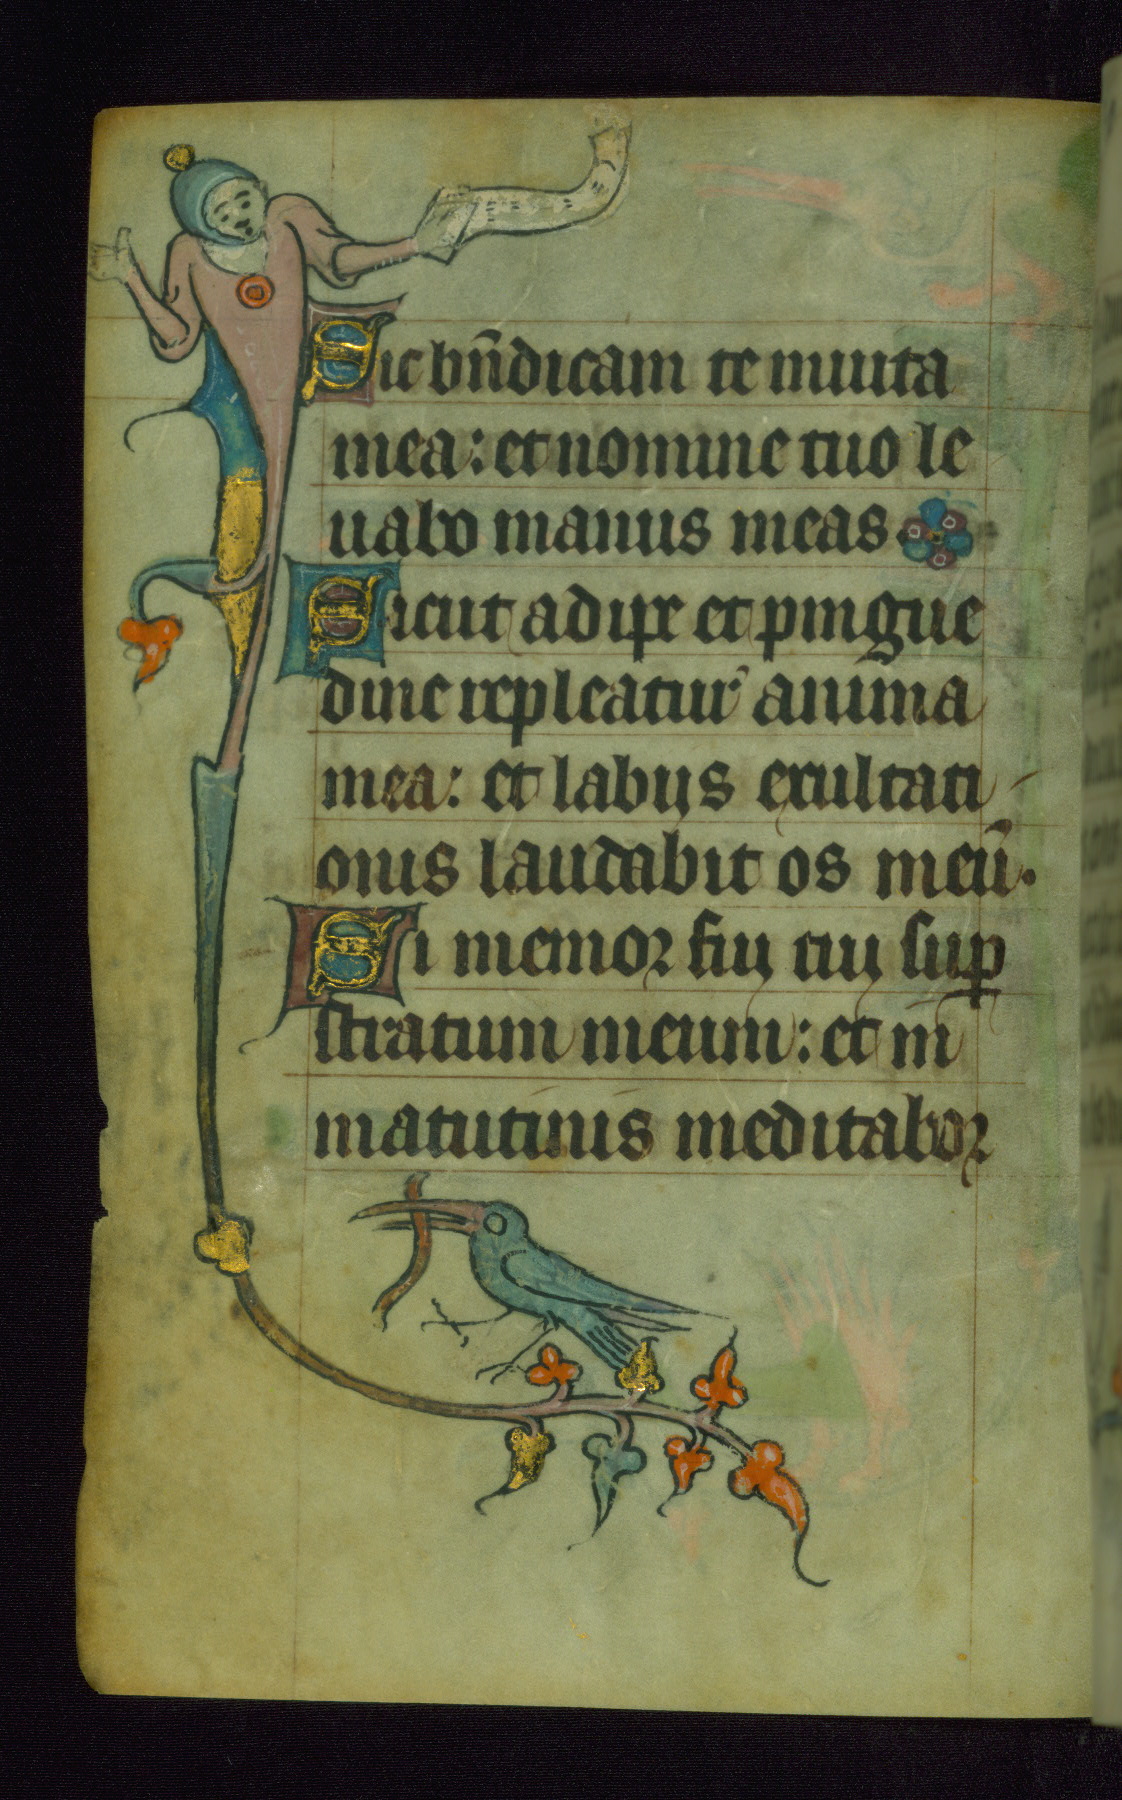 Sic bñdicam te in uita
mea: et nomine tuo le
uabo manus meas.
Sicut adipe et pingue
dine repleatur anima
mea: et labijs exultati
onis laudabit os meũ.
Si memor fui tui sup̱
stratum meum: et in
matutinis meditabor